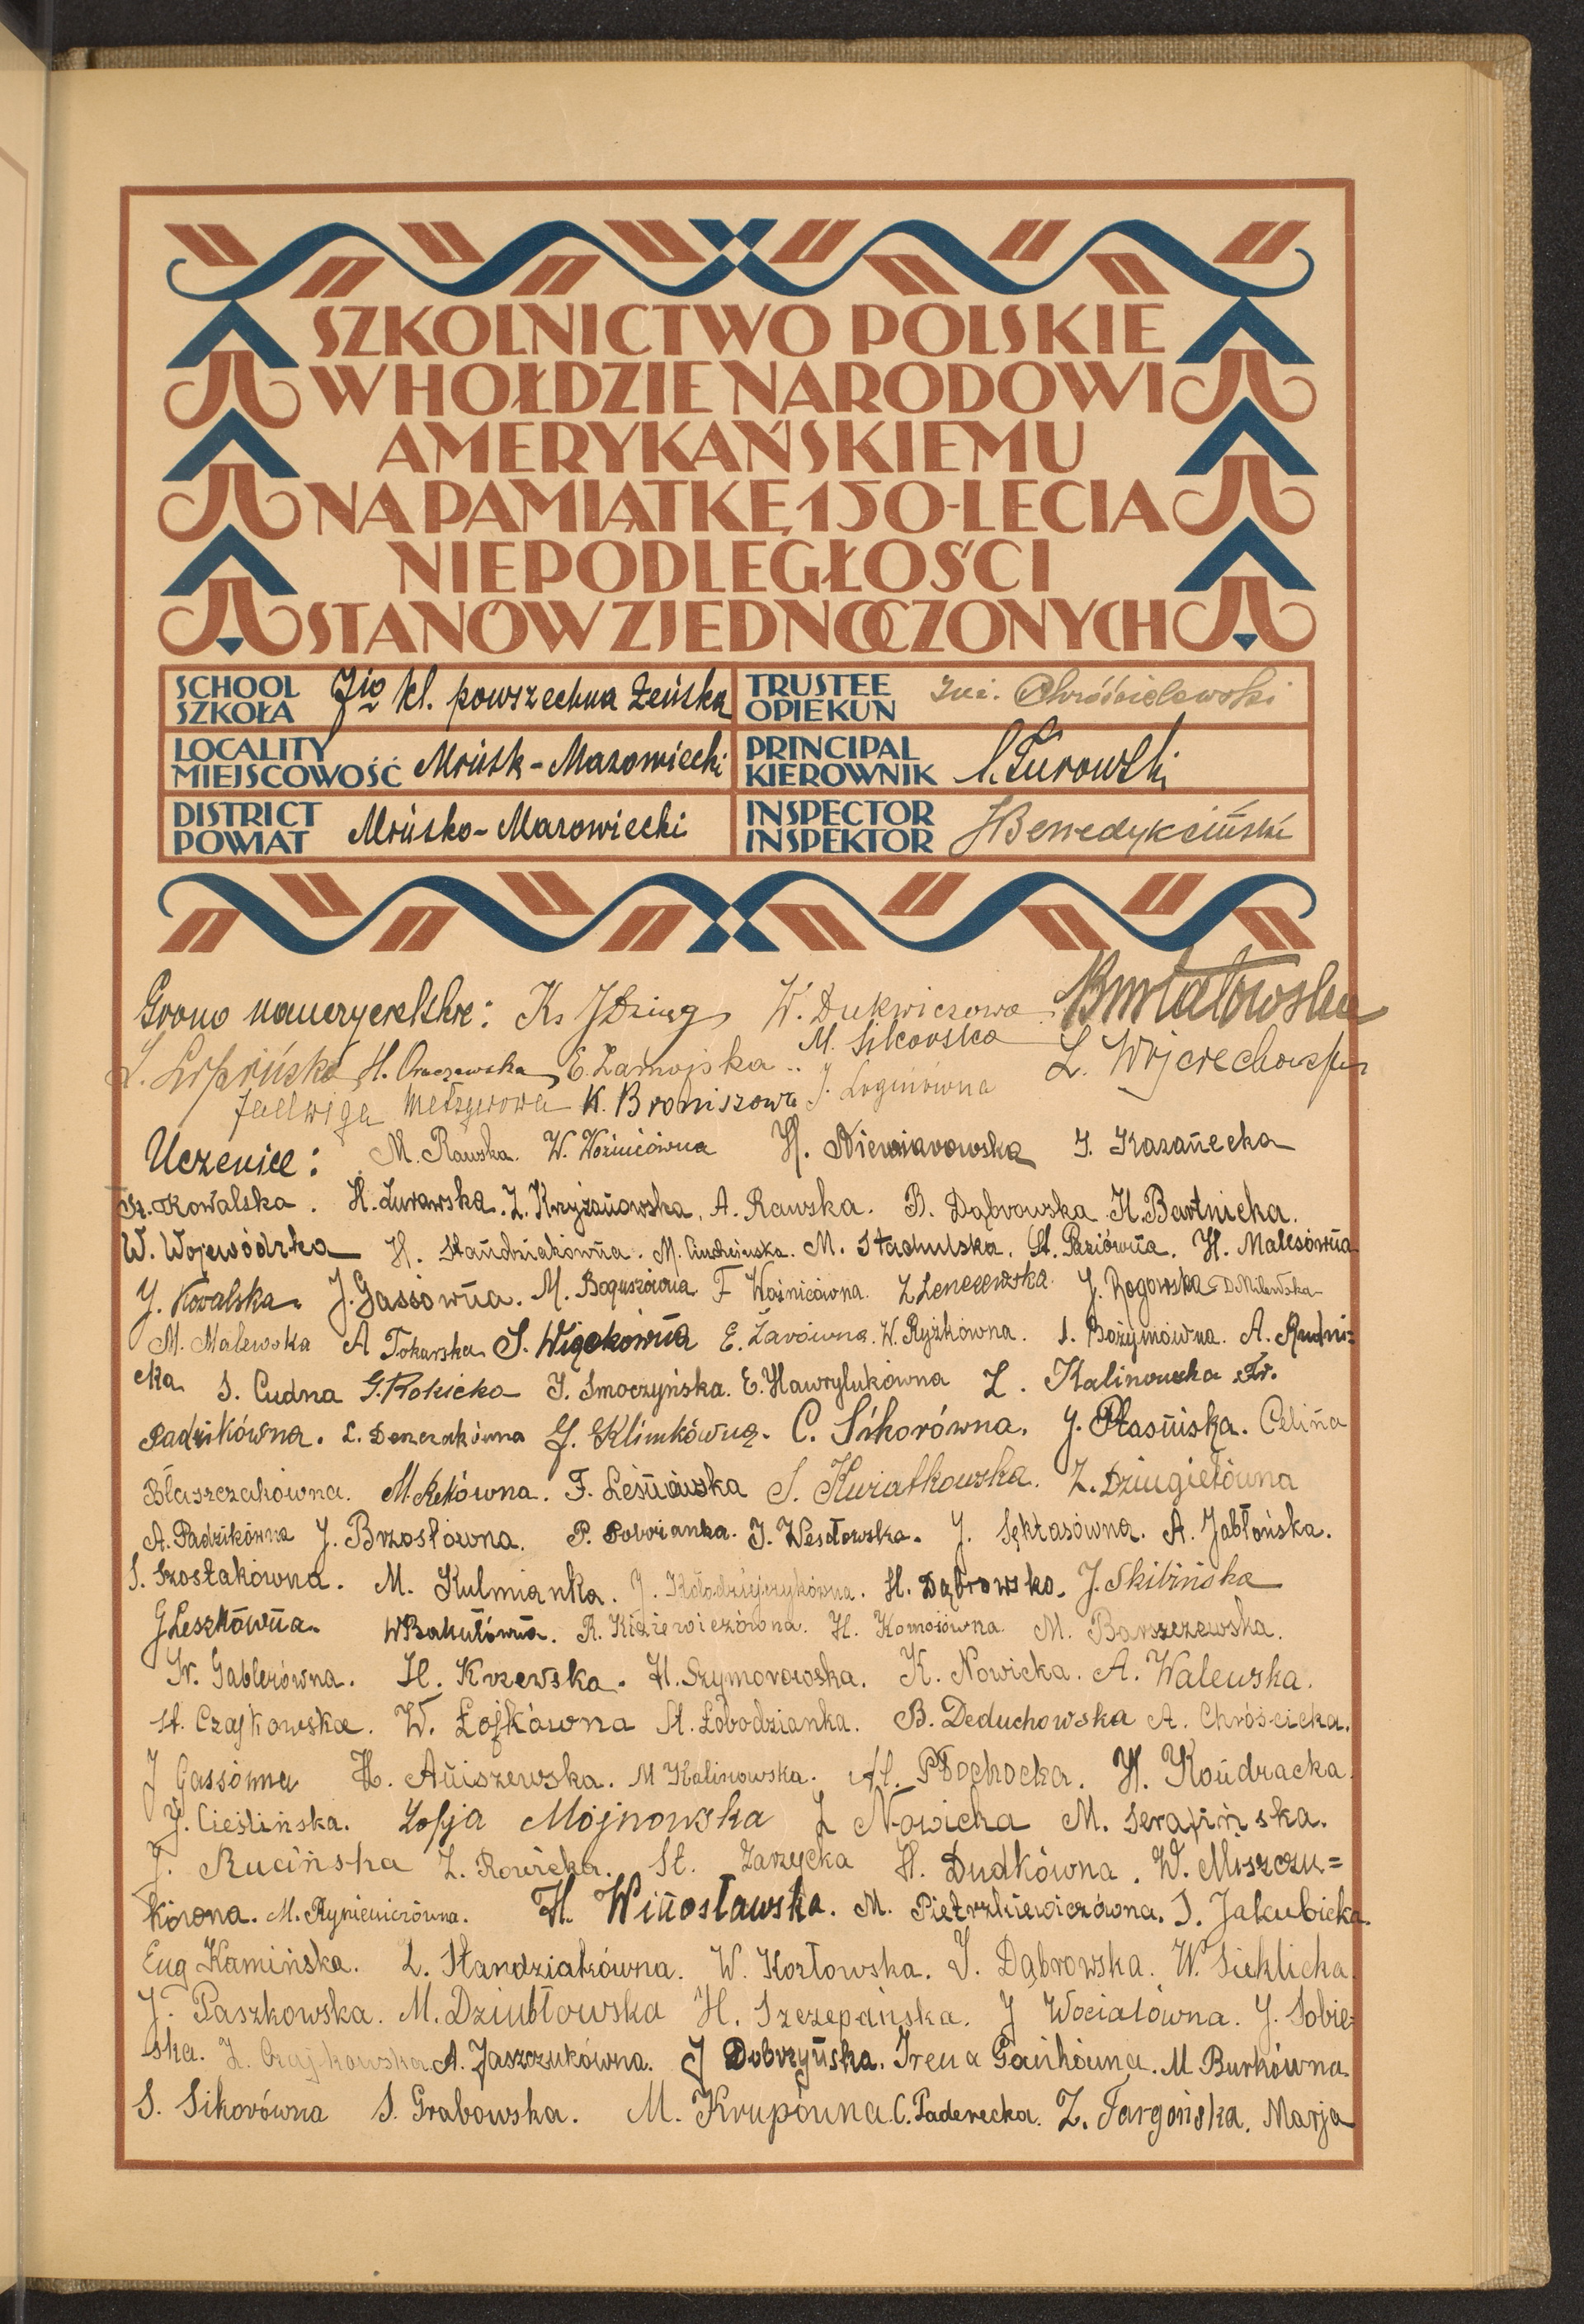 SZKOLNICTWO POLSKIE
W HOŁDZIE NARODOWI
AMERYKAŃSKIEMU
NA PAMIĄTKĘ 150-LECIA
NIEPODLEGŁOŚCI
STANÓW ZJEDNOCZONYCH
SCHOOL SZKOŁA 7io kl. powszechna żeńska
TRUSTEE OPIEKUN Chróścielewski
LOCALITY MIEJSCOWOŚĆ Mińsk-Mazowiecki
PRINCIPAL KIEROWNIK Żurowski
DISTRICT POWIAT Mińsko-Mazowiecki
INSPECTOR INSPEKTOR Benedykciński
Grono nauczycielskie: Ks W. Dukwiczowa
M. Sikorska
E. Zamojska L. Wojciechowska
Jadwiga K. Broniszowa J. Loginówna
Uczenice: M. Rawska. W. Woźnicówna H. Niewiarowska J. Kazanecka
Fr. Kowalska. H. Żurawska. Z. Krzyżanowska. A. Rawska. B. Dąbrowska H. Bartnicka.
W. Wojewódzka H. Standziakówna. M. M. Stachulska. St. Paziówna. H. Malesówna
J. Kowalska. J. Gassówna. M. Boguszówna F Woźnicówna. Z Lenczewska. J. Rogowska D. Milewska
M. Malewska A Tokarska S. Wiąckówna E. Żarówna. W. Ryżkówna. J. Bożymówna. A. Rudni-
cka S. Cudna G. Rokicka J. Smoczyńska. E. Hawrylukówna Z. Kalinowska Fr.
Padzikówna. L. Denczakówna G. Klimkówna. C. Sikorówna. J. Płasińska. Celina
Błaszczakówna. M. Rekówna. F. Leśniewska S. Kwiatkowska. Z. Dziugiełówna
A. Padzikówna J. Brzosłówna. P. J. Wesłowska. J. Sęktasówna. A. Jabłońska.
S. Szostakówna. M. Kulmianka. J. Kołodziejczykówna. H. Dąbrowska. J. Skibińska
G Leszkówna. W Bakułówna. R. Kiziewiczówna. H. Komosówna M. Barszczewska.
Ir. Gablerówna. H. Krzewska. H. Szymorowska. K. Nowicka. A. Walewska.
St. Czajkowska. W. Łojkówna St. Łobodzianka. B. Deduchowska A. Chróścicka.
J Gassówna H. Aniszewska. M Kalinowska. M. Płochocka. H. Kondracka
J. Cieślińska. Zofja Mojnowska Z Nowicka M. Serafińska.
J. Rucińska Z. Rowicka. St. Zarzycka H. Dudkówna. W. Miszczu=
kówna. M. Rymiewiczówna. H. Winosławska. M. Pietrzkiewiczówna. J. Jakubicka.
Eug Kamińska. L. Standziakówna. W. Kozłowska. J. Dąbrowska. W. Sieklicka
J. Paszkowska. M. Dziubłowska H. Szczepańska. J Wocialówna. J. Sobie-
ska. Z. Czajkowska A. Jaszczukówna. J Dobrzyńska. Irena Gańkówna. M Burkówna
S. Sikorówna S. Grabowska. M. Krupówna. C. Paderecka. Z. Targońska. Marja